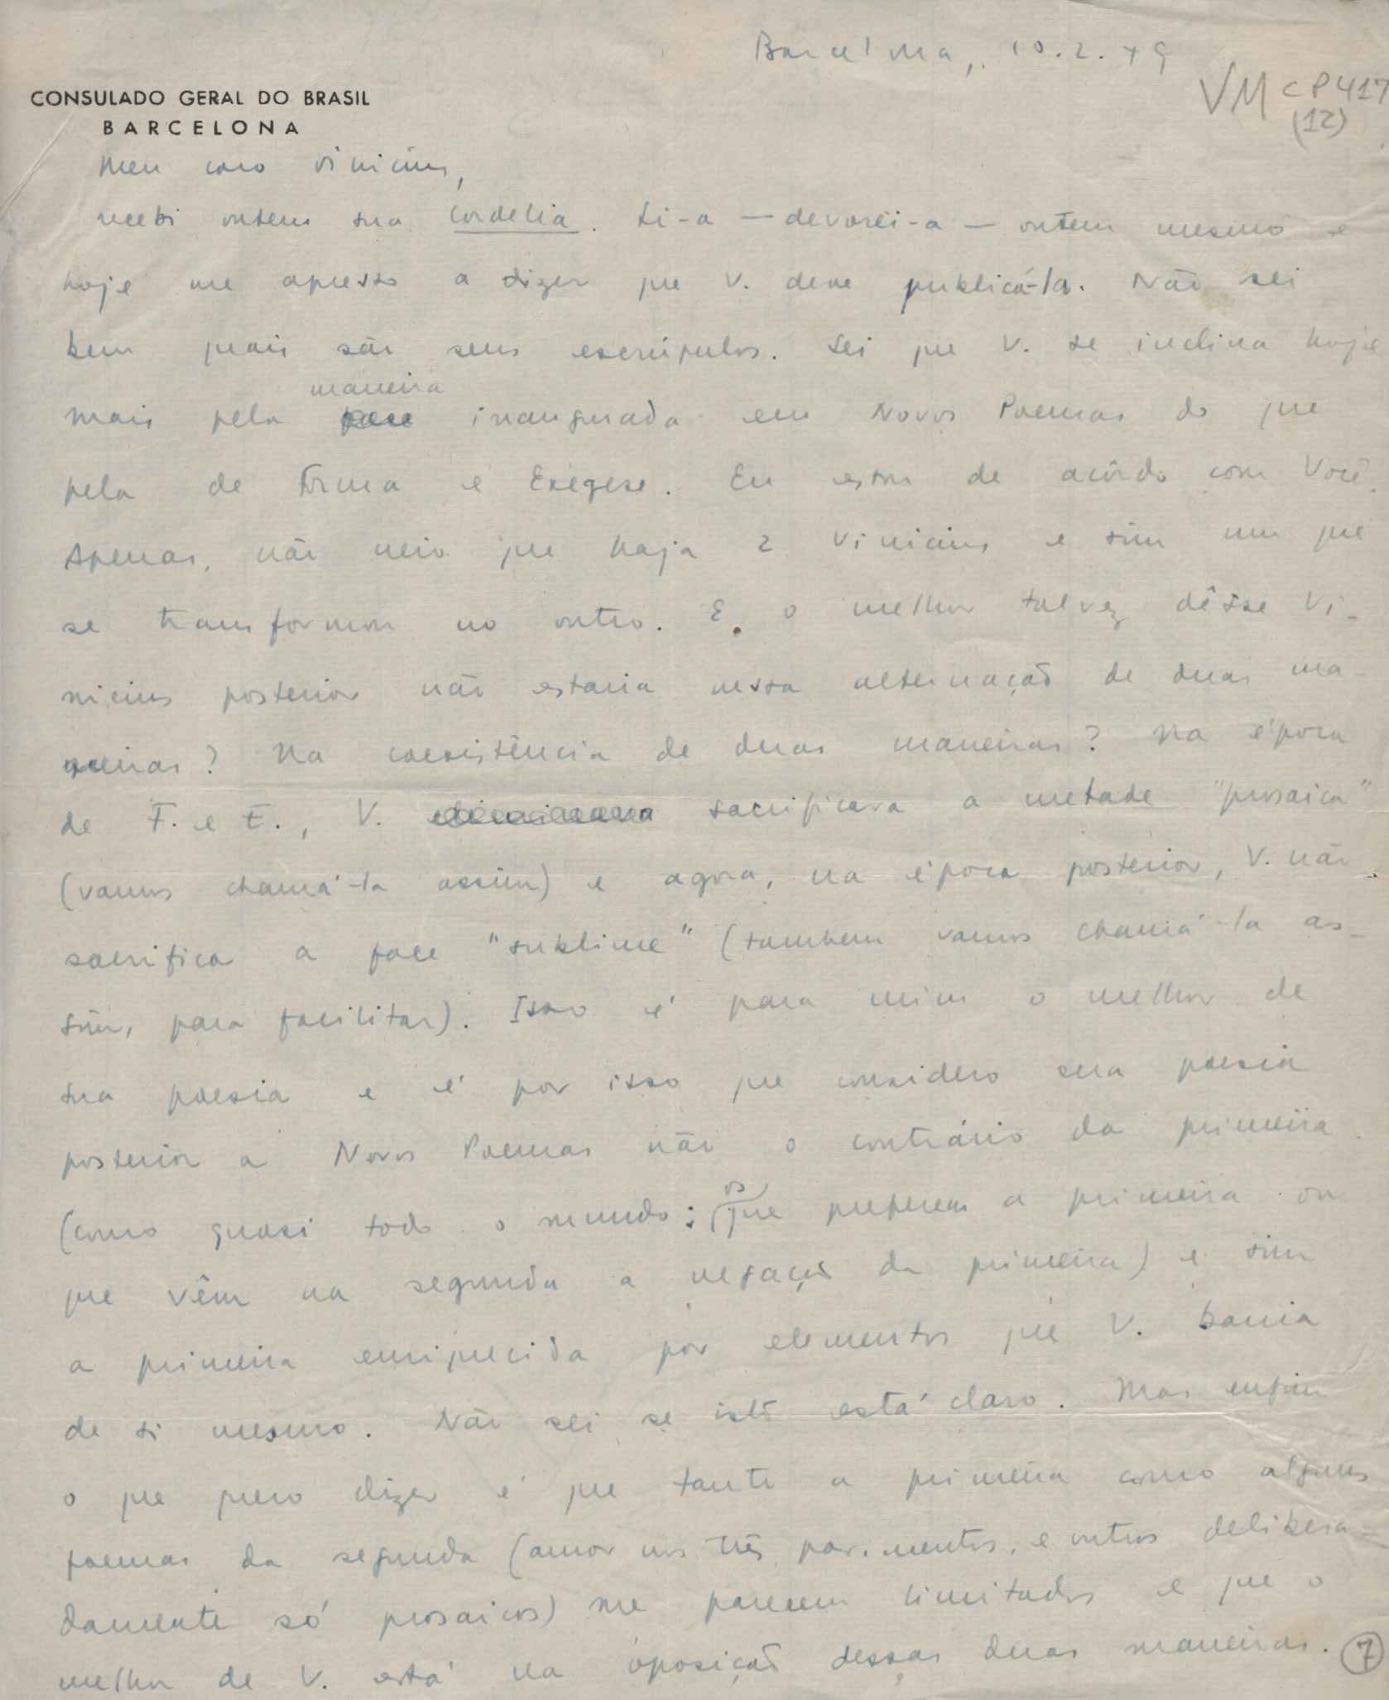 Barcelona, 10.2.49
VM CP417
(12)
CONSULADO GERAL DO BRASIL
BARCELONA
Meu caro Vinicius,
recebi ontem sua Cordelia. Li-a — devorei-a — ontem mesmo e
hoje me apresso a dizer que V. deve publicá-la. Não sei
bem quais são seus escrúpulos. Sei que V. se inclina hoje
maneira
mais pela face inaugurada em Novos Poemas do que
pela de Forma e Exegese. Eu estou de acôrdo com Você.
Apenas, não creio que haja 2 Vinicius e sim um que
se transformou no outro. E o melhor talvez dêsse Vi-
nicius posterior não estaria nessa alternação de duas ma-
neiras? Na coexistência de duas maneiras? Na época
de F. e E., V. eliminava sacrificava a metade "prosaica"
(vamos chamá-la assim) e agora, na época posterior, V. não
sacrifica a face "sublime" (tambem vamos chamá-la as-
sim, para facilitar). Isso é para mim o melhor de
sua poesia e é por isso que considero sua poesia
posterior a Novos Poemas não o contrário da primeira
os
(como quasi todo o mundo: que preferem a primeira ou
que vêm na segunda a negação da primeira) e sim
a primeira enriquecida por elementos que V. bania
de si mesmo. Não sei se isto está claro. Mas enfim
o que quero dizer é que tanto a primeira como alguns
poemas da segunda (amor nos três pavimentos, e outros delibera-
damente só prosaicos) me parecem limitados e que o
melhor de V. está na oposição dessas duas maneiras.
7